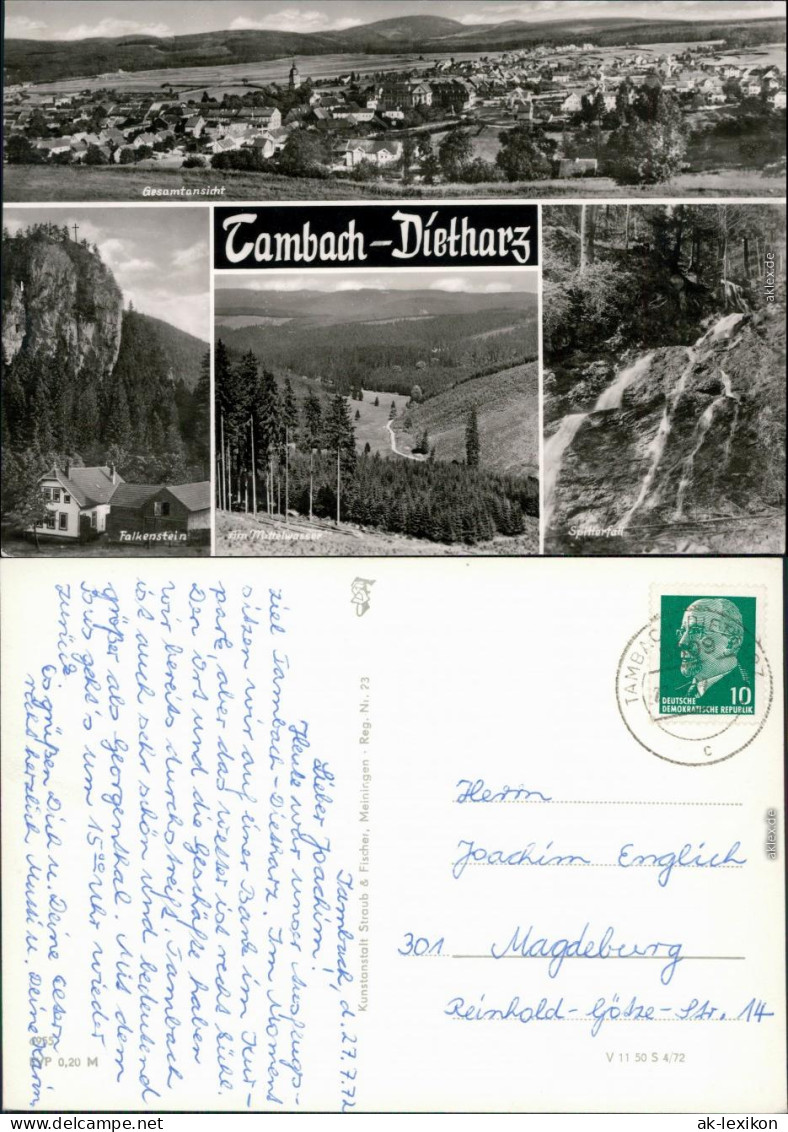 Gesamtansicht
Tambach-Dietharz
Falkenstein
Am "Mittelwasser"
Spitterfall
aklex.de
Tambach, d. 27.7.72
Lieber Joachim!
Heute war unser Ausflugs-
ziel Tambach-Dietharz. Im Moment
sitzen wir auf einer Bank im Kur-
park, aber das Wetter ist recht kühl.
Den Ort und die Geschäfte haben
wir bereits durchstreift. Tambach
ist auch sehr schön und bedeutend
größer als Georgenthal. Mit dem
Bus geht's um 15 00 Uhr wieder
zurück.
Es grüßen Dich u. Deine Eltern
recht herzlich Mutti u. Deine Karin
Kunstanstalt Straub & Fischer, Meiningen · Reg. Nr. 23
6955
EVP 0,20 M
TAMBACH-DIETHARZ
5809
c
10
DEUTSCHE
DEMOKRATISCHE REPUBLIK
Herrn
Joachim Englich
301 Magdeburg
Reinhold-Götze-Str. 14
V 11 50 S 4/72
aklex.de
www.ansichtskarten-lexikon.de
ak-lexikon